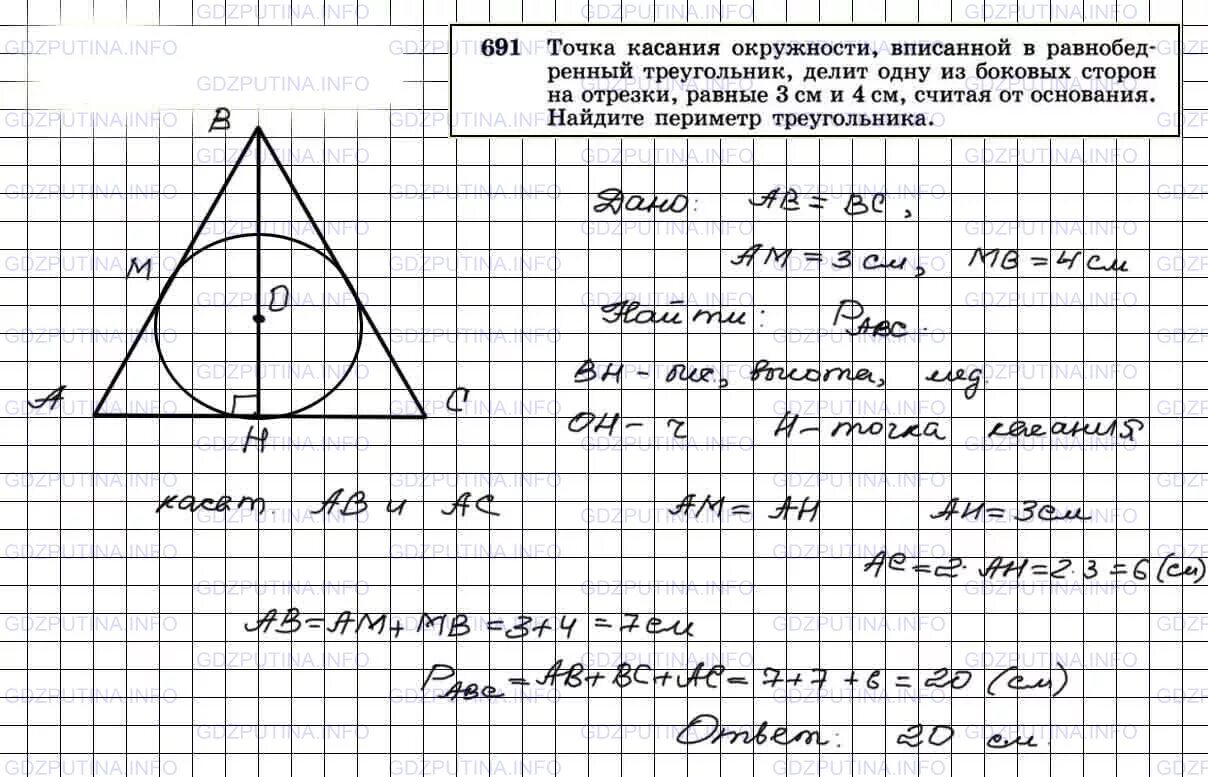 691 Точка касания окружности, вписанной в равнобед-
ренный треугольник, делит одну из боковых сторон
на отрезки, равные 3 см и 4 см, считая от основания.
Найдите периметр треугольника.
B
M
O
A
C
H
Дано: AB = BC,
AM = 3 см, MB = 4 см
Найти: P_ABC.
BH – бис., высота, мед.
OH – r H – точка касания
касат. AB и AC AM = AH AH = 3 см
AC = 2 · AH = 2 · 3 = 6 (см)
AB = AM + MB = 3 + 4 = 7 см
P_ABC = AB + BC + AC = 7 + 7 + 6 = 20 (см)
Ответ: 20 см.
GDZPUTINA.INFO